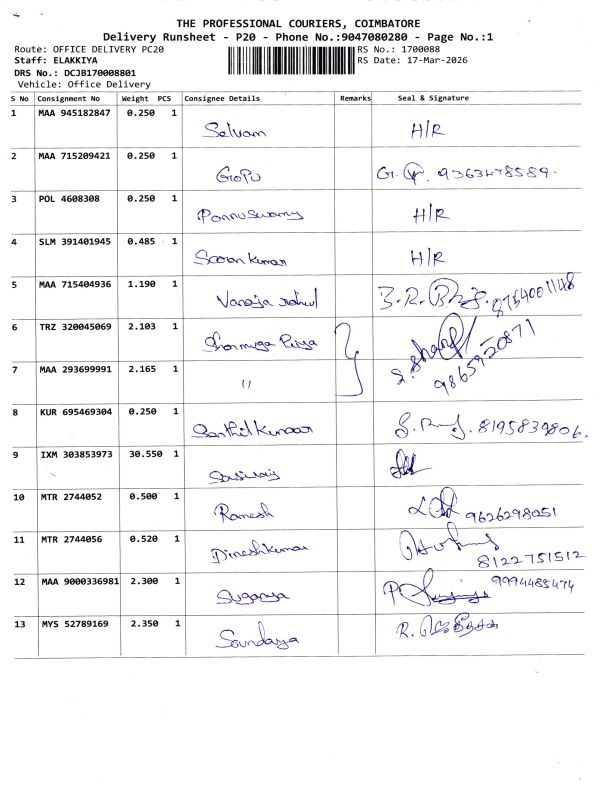 THE PROFESSIONAL COURIERS, COIMBATORE
Delivery Runsheet - P20 - Phone No.:9047080280 - Page No.:1
Route: OFFICE DELIVERY PC20 RS No.: 1700088
Staff: ELAKKIYA RS Date: 17-Mar-2026
DRS No.: DCJB170008801
Vehicle: Office Delivery
S No Consignment No Weight PCS Consignee Details Remarks Seal & Signature
1 MAA 945182847 0.250 1 Selvam H/R
2 MAA 715209421 0.250 1 GoPU 9363478589.
3 POL 4608308 0.250 1 Ponnuswamy H/R
4 SLM 391401945 0.485 1 H/R
5 MAA 715404936 1.190 1 Vanaja 8754001148
6 TRZ 320045069 2.103 1 Shanmuga Priya
7 MAA 293699991 2.165 1 11 9865920871
8 KUR 695469304 0.250 1 Senthil Kumaar 8195839806.
9 IXM 303853973 30.550 1
10 MTR 2744052 0.500 1 Ramesh 9626298051
11 MTR 2744056 0.520 1 Dineshkumar 8122751512
12 MAA 9000336981 2.300 1 Suganya 9994485474
13 MYS 52789169 2.350 1 Soundarya R.